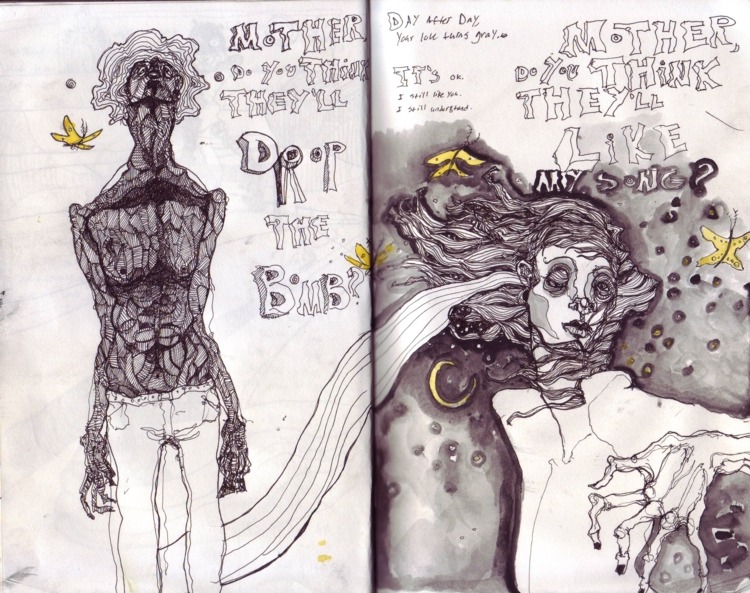 MOTHER
DO YOU THINK
THEY'LL
DROP
THE
BOMB?
DAY AFTER DAY,
Your love turns gray.
IT'S OK.
I still like you.
I still understand.
MOTHER,
DO YOU THINK
THEY'LL
LIKE
MY SONG?